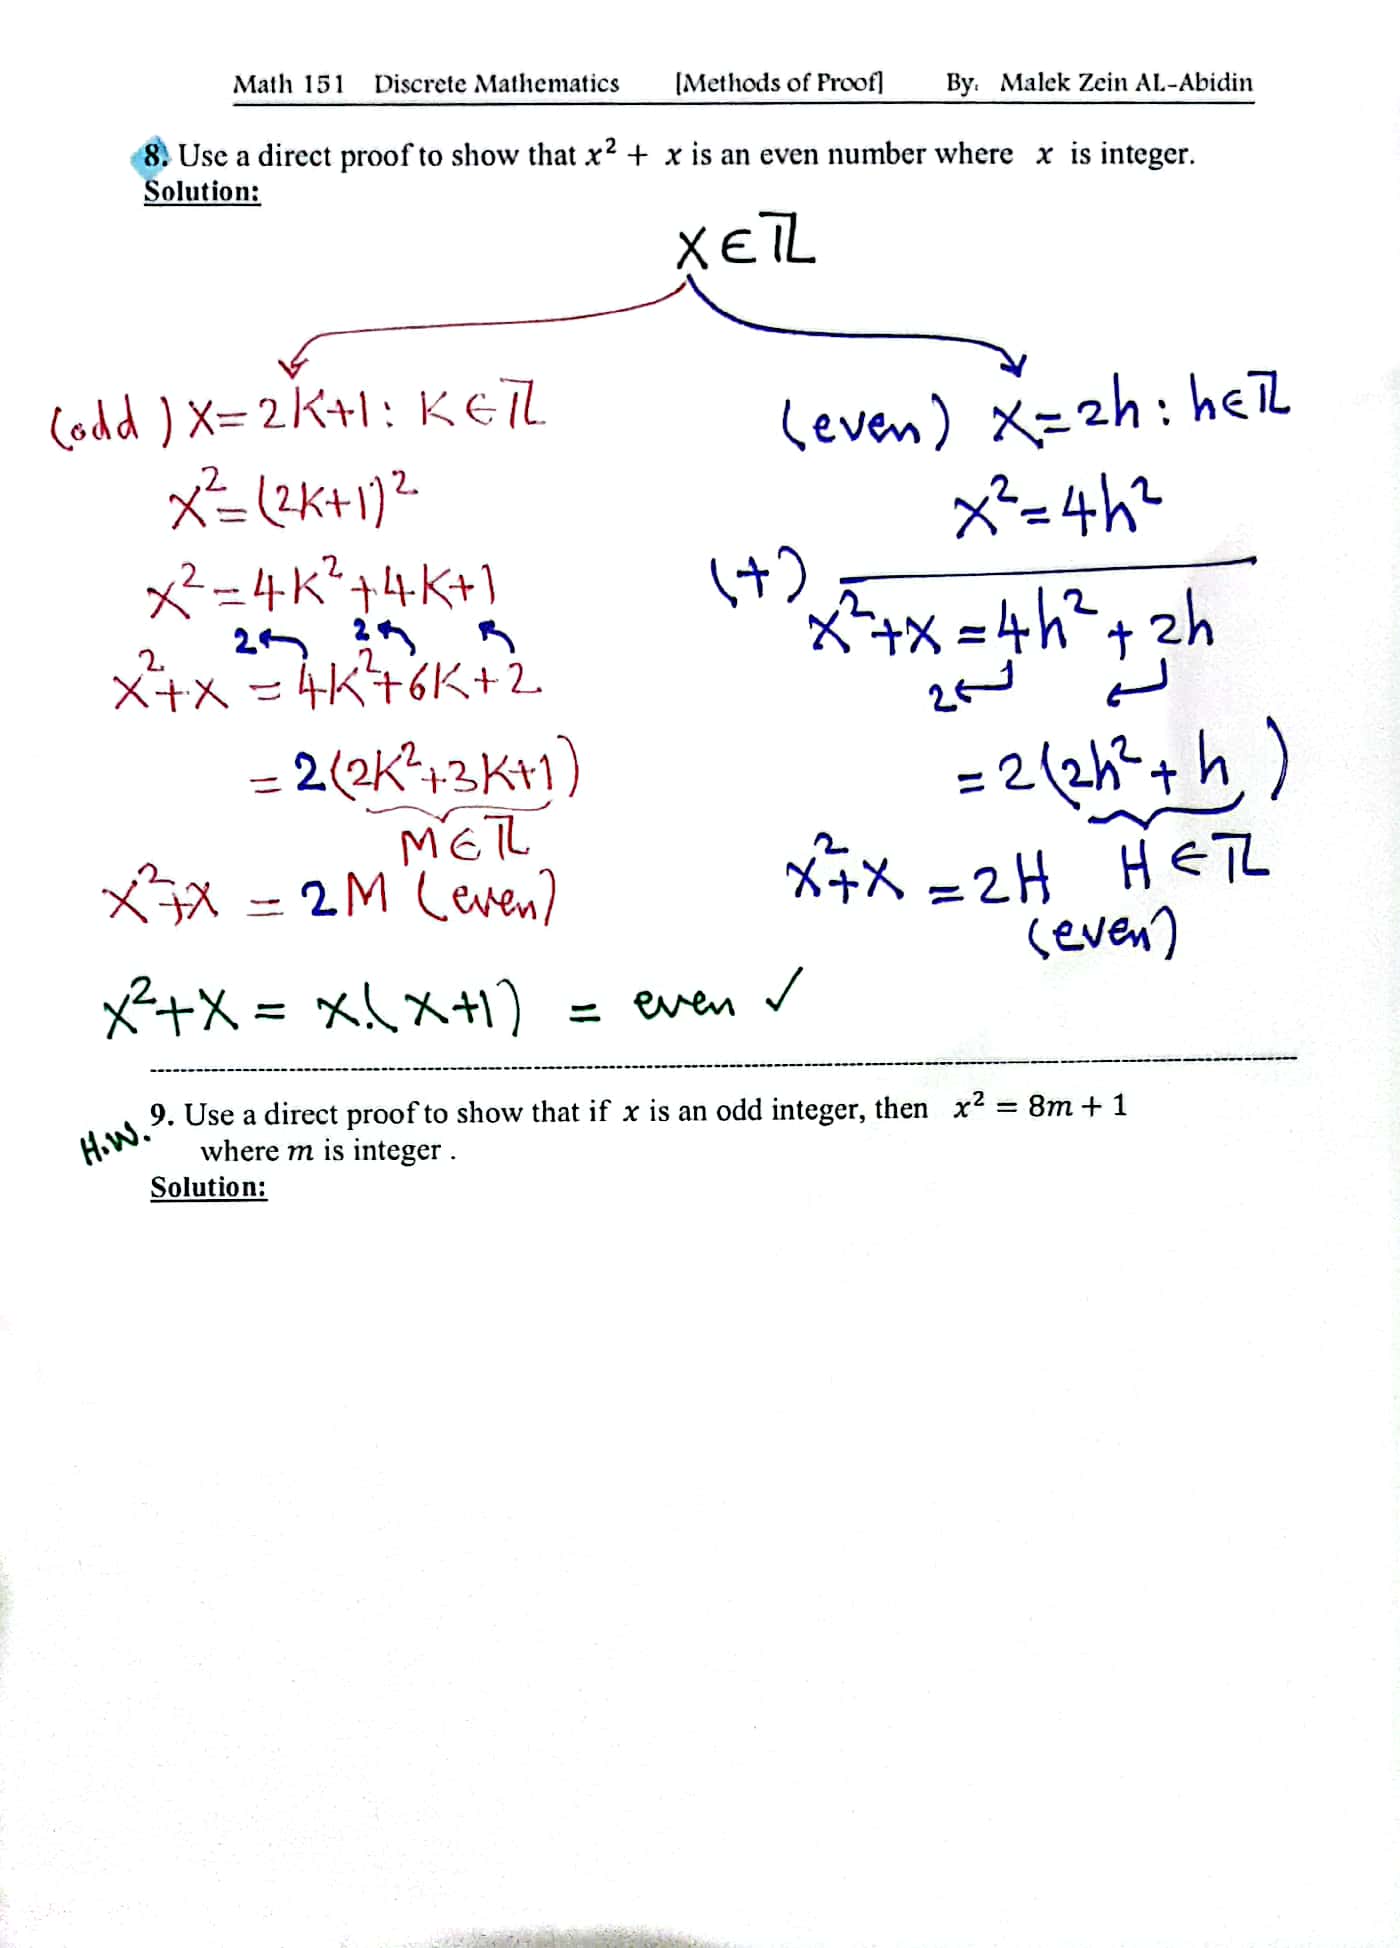 Math 151 Discrete Mathematics [Methods of Proof] By: Malek Zein AL-Abidin
8. Use a direct proof to show that x² + x is an even number where x is integer.
Solution:
X∈ℤ
(odd) X=2K+1: K∈ℤ
X²=(2K+1)²
X²=4K²+4K+1
X²+X = 4K²+6K+2
2 2
= 2(2K²+3K+1)
M∈ℤ
X²+X = 2M (even)
(even) X=2h: h∈ℤ
X²=4h²
(+)
X²+X=4h²+2h
2
=2(2h²+h)
X²+X=2H H∈ℤ
(even)
X²+X = X.(X+1) = even ✓
H.W. 9. Use a direct proof to show that if x is an odd integer, then x² = 8m + 1
where m is integer .
Solution: